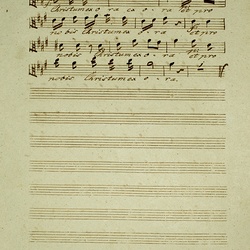 Christum ea o - ra ea o - ra et pro
nobis Christum ea o - ra et pro
nobis Christum ea o - ra et pro
nobis Christum ea o - ra.